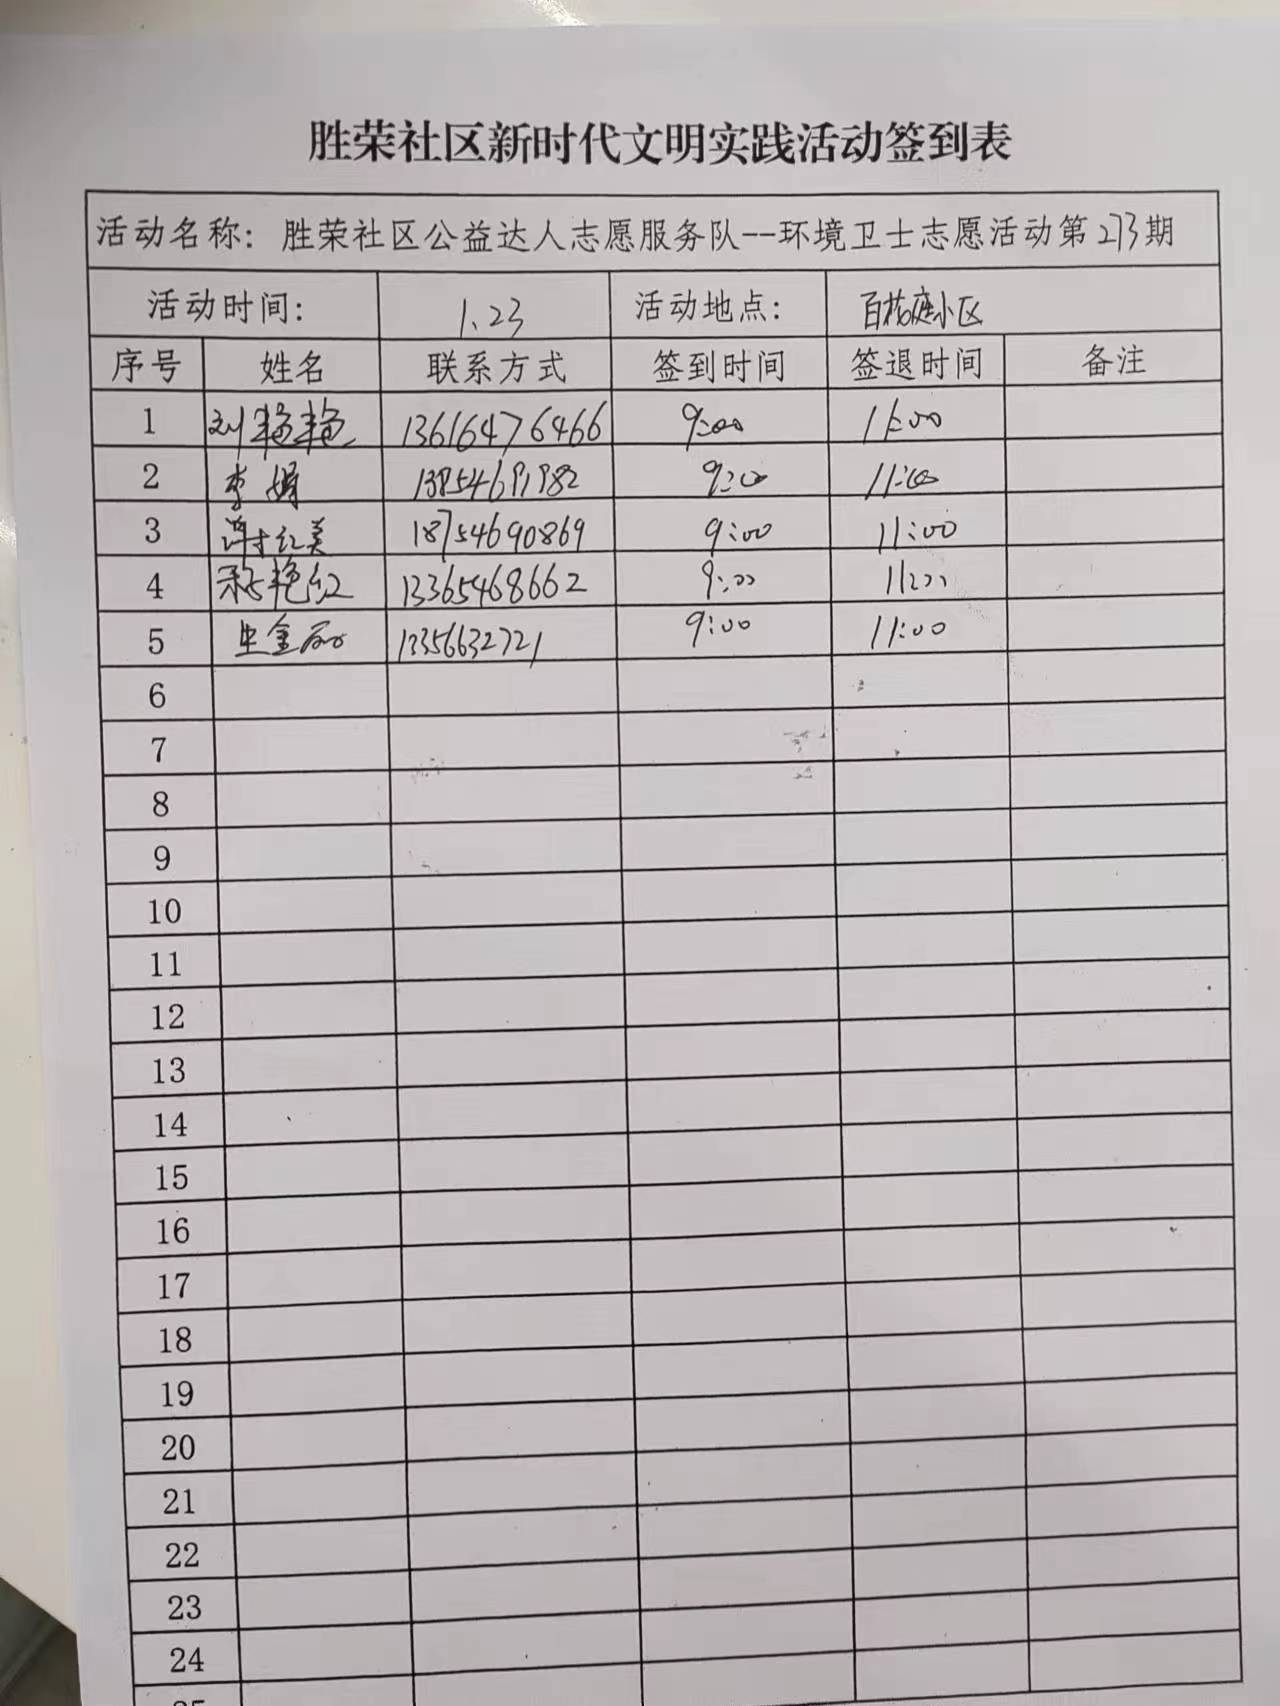 胜荣社区新时代文明实践活动签到表
活动名称：胜荣社区公益达人志愿服务队--环境卫士志愿活动第273期
活动时间： 1.23 活动地点： 小区
序号 姓名 联系方式 签到时间 签退时间 备注
1 刘艳艳 13616476466 9:00 11:00
2 李娟 9:00 11:00
3 红美 18754690869 9:00 11:00
4 艳红 13365468662 9:00 11:00
5 13356632721 9:00 11:00
6
7
8
9
10
11
12
13
14
15
16
17
18
19
20
21
22
23
24
25